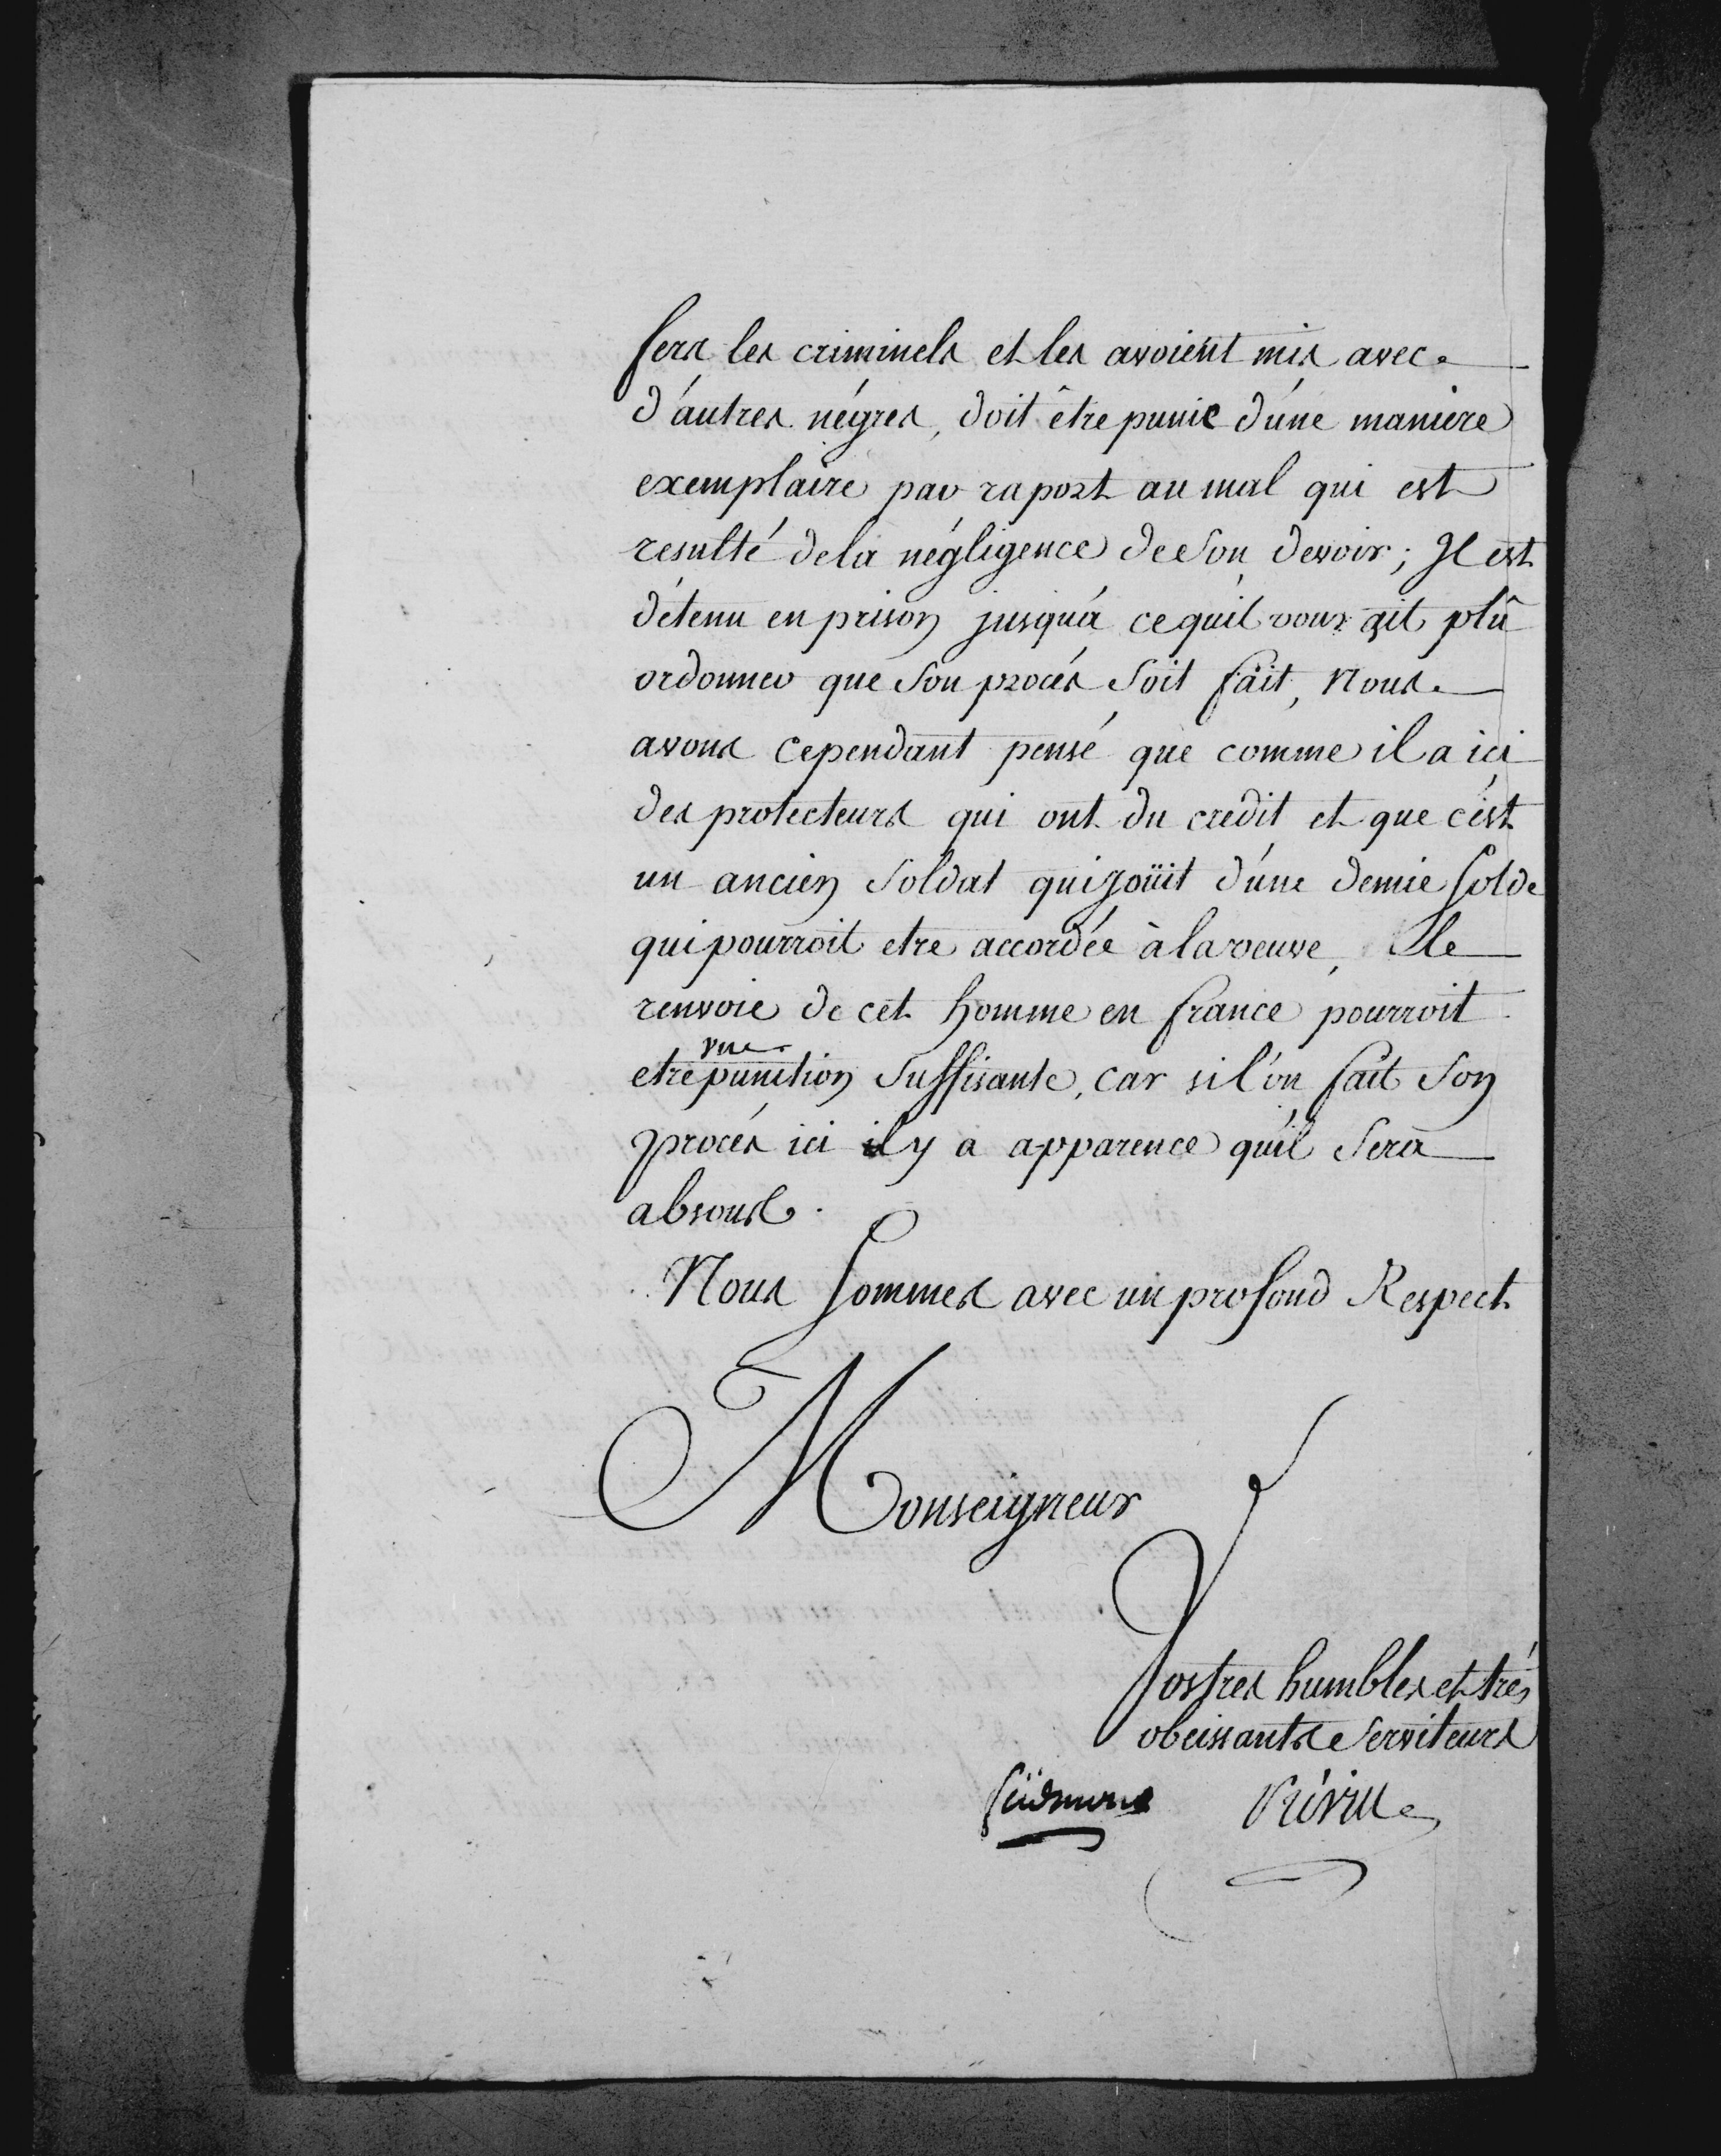 fers les criminels et les avoient mis avec
d'autres négres, doit être punie d'une maniere
exemplaire par raport au mal qui est
resulté de la négligence de son devoir; Il est
détenu en prison jusqu'à ce qu'il vous ait plû
ordonner que son procés soit fait, Nous
avons cependant pensé que comme il a ici
des protecteurs qui ont du credit et que c'est
un ancien soldat qui joüit d'une demie solde
qui pourroit etre accordée à la veuve, le
renvoie de cet homme en france pourroit
etre une punition suffisante, car si l'on fait son
procés ici il y a apparence qu'il sera
absous.
Nous sommes avec un profond Respect
Monseigneur
Vostres humbles et trés
obeissants serviteurs